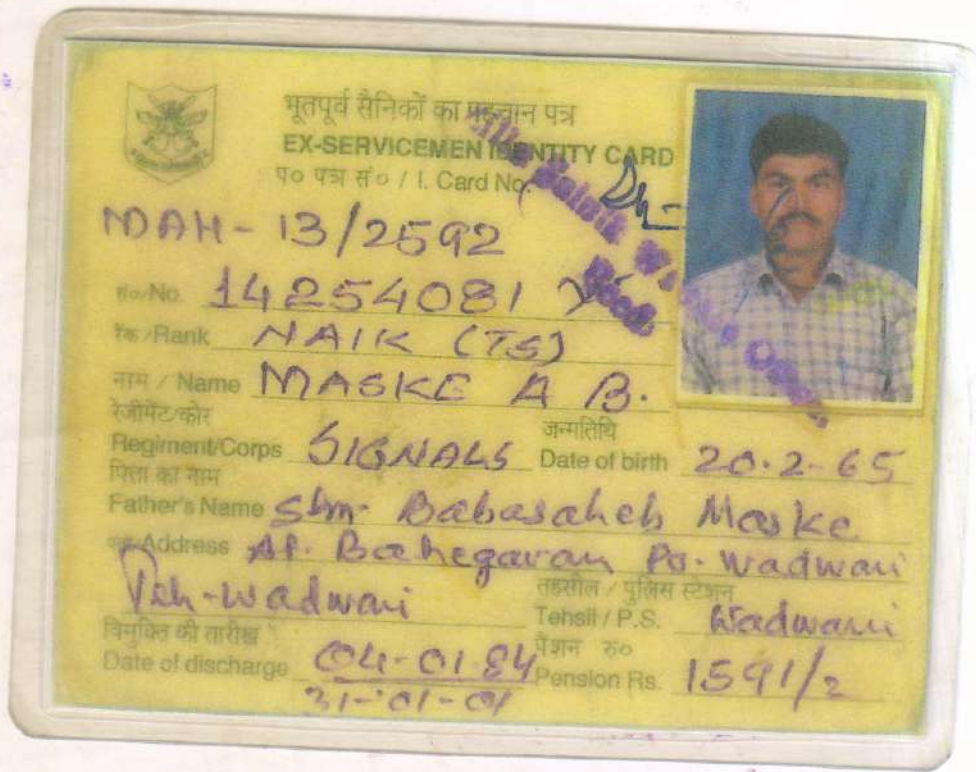 भूतपूर्व सैनिकों का पहचान पत्र
EX-SERVICEMEN IDENTITY CARD
प० पत्र सं० / I. Card No.
MAH - 13/2592
सं०/No. 14254081
रैंक/Rank NAIK (TS)
नाम / Name MASKE A B.
रेजीमेंट/कोर
Regiment/Corps SIGNALS
जन्मतिथि
Date of birth 20.2-65
पिता का नाम
Father's Name Shri. Babasaheb Maske
Address At. Bahegavan Po. Wadwani
Teh-Wadwani
तहसील / पुलिस स्टेशन
Tehsil / P.S. Wadwani
विमुक्ति की तारीख
Date of discharge 04-01-84
31-01-01
पेंशन रु०
Pension Rs. 1591/2
Sainik